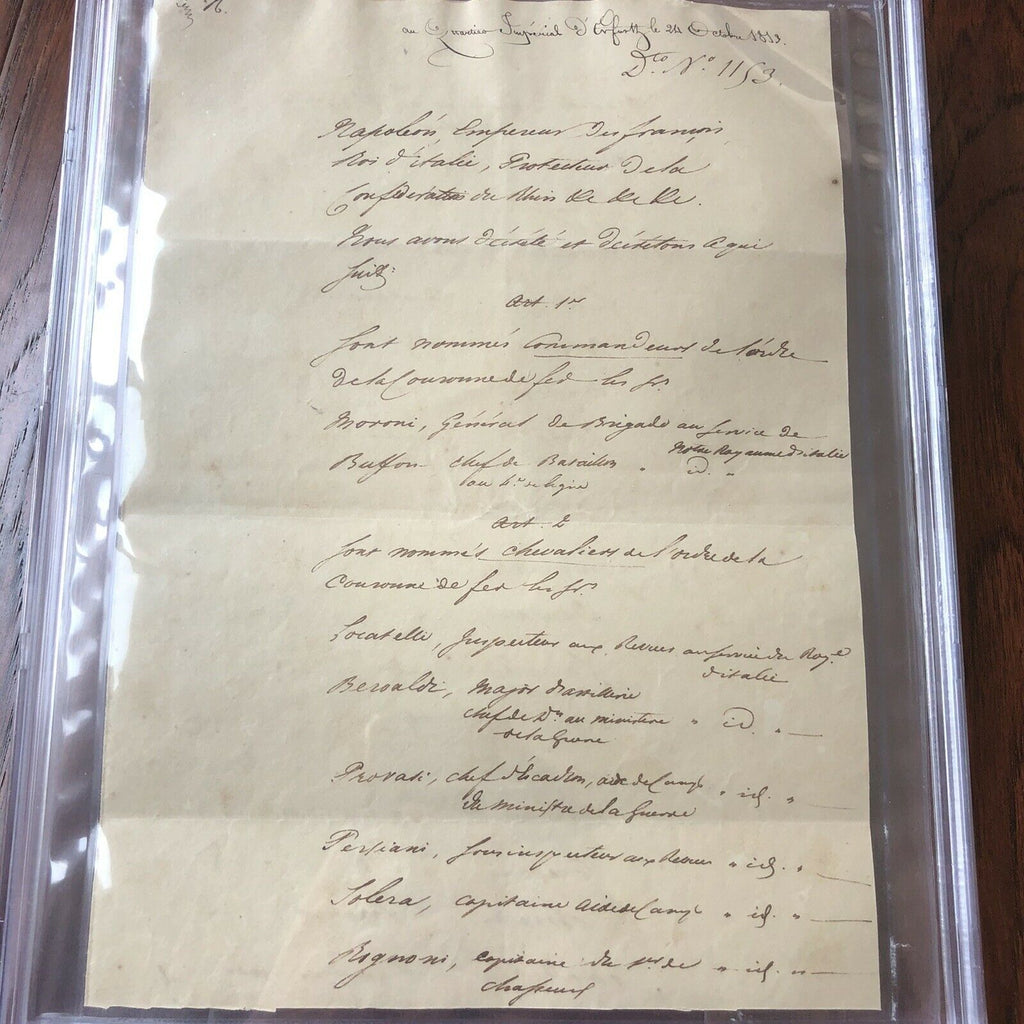 au Quartier Impérial d'Erfurth le 24 Octobre 1813.
D.to N.o 1153.
Napoléon Empereur des françois,
Roi d'italie, Protecteur de la
Confédération du Rhin &c &c &c.
Nous avons décrété et décrétons ce qui
suit:
Art. 1er
Sont nommés Commandeurs de l'ordre
de la Couronne de fer les Srs
Moroni, Général de Brigade au service de
Notre Royaume d'italie
Buffon chef de Bataillon " id. "
au de ligne
Art. 2
Sont nommés chevaliers de l'ordre de la
Couronne de fer les Srs
Locatelli, Inspecteur aux Revues au service du Roy.e
d'italie
Beroaldi, Major d'artillerie
chef de D.on au ministère " id. "
de la Guerre
Provasi, chef d'escadron, aide de Camp " id. "
du Ministre de la Guerre
Persiani, sous inspecteur aux Revues " id. "
Solera, capitaine aide de Camp " id. "
Rognoni, capitaine du 1er de " id. "
chasseurs